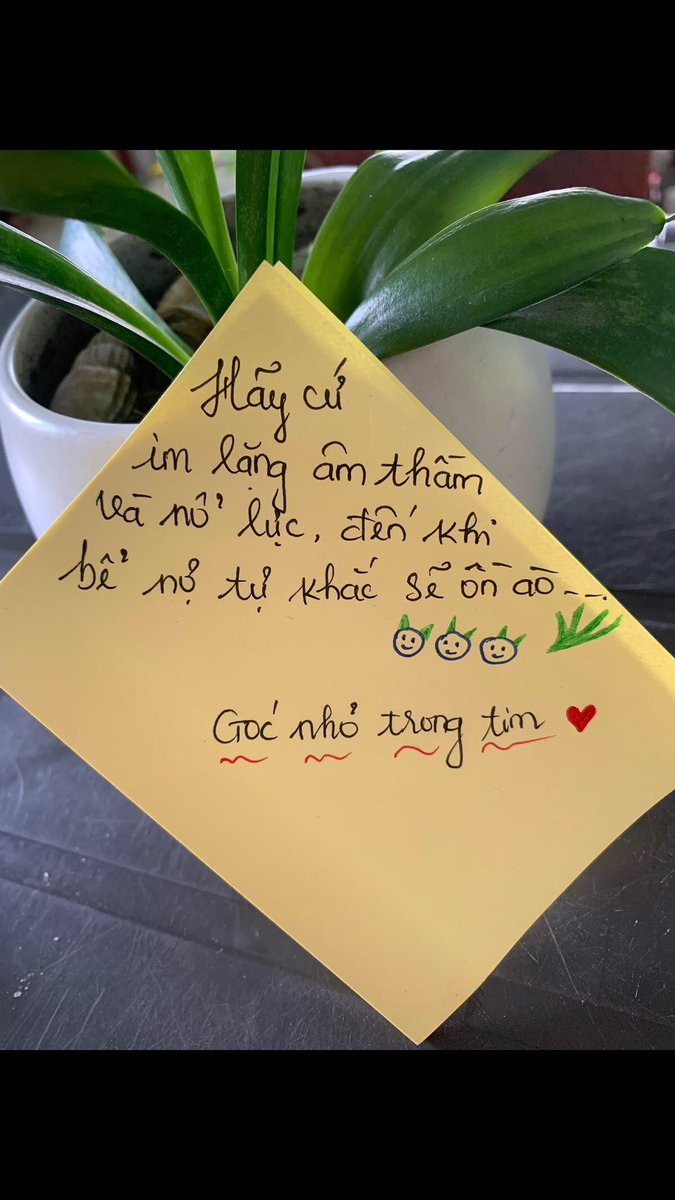 Hãy cứ
im lặng âm thầm
và nổ lực, đến khi
bể nợ tự khắc sẽ ồn ào...
Góc nhỏ trong tim